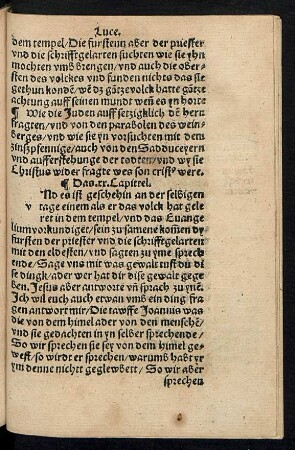 Luce.
dem tempel/Die fursteñ aber der priester
vnd die schrifftgelarten suchten wie sie yhn
mochten vmb brengen/vnd auch die ober-
sten des volckes vnd funden nichts das sie
gethun kondē/wē dz gātze volck hatte gātze
achtung auff seinen mund weñ es yn horte
¶ Wie die Juden auff setzigklich dē hern
fragten/vnd von den parabolen des wein
berges/vnd wie sie yn vorsuchten mit dem
zinszpfennige/auch von den Sadduceyern
vnd aufferstehunge der todten/vnd wy sie
Christus wider fragte wes son crist9 were.
¶ Das.xx.Capittel.
No es ist geschehin an der selbigen
v tage einem als er das volck hat gele
ret in dem tempel/vnd das Euange
lium vorkundiget/sein zu samene komen dy
fursten der priester vnd die schrifftgelarten
mit den eldesten/vnd sagten zu yme sprech
ende/Sage vns mit was gewalt tust du di
se dingk/ader wer hat dir dise gewalt gege
ben. Jesus aber antworte vñ sprach zu ynē.
Jch wil euch auch etwan vmb ein ding fra
gen antwort mir/Die tawffe Joannis was
die von dem himel ader von den menschē/
vnd sie gedachten in yn selber sprechende/
So wir sprechen sie sey von dem himel ge-
west/so wirdt er sprechen/warumb habt yr
ym denne nichtt geglewbett/So wir aber
sprechen